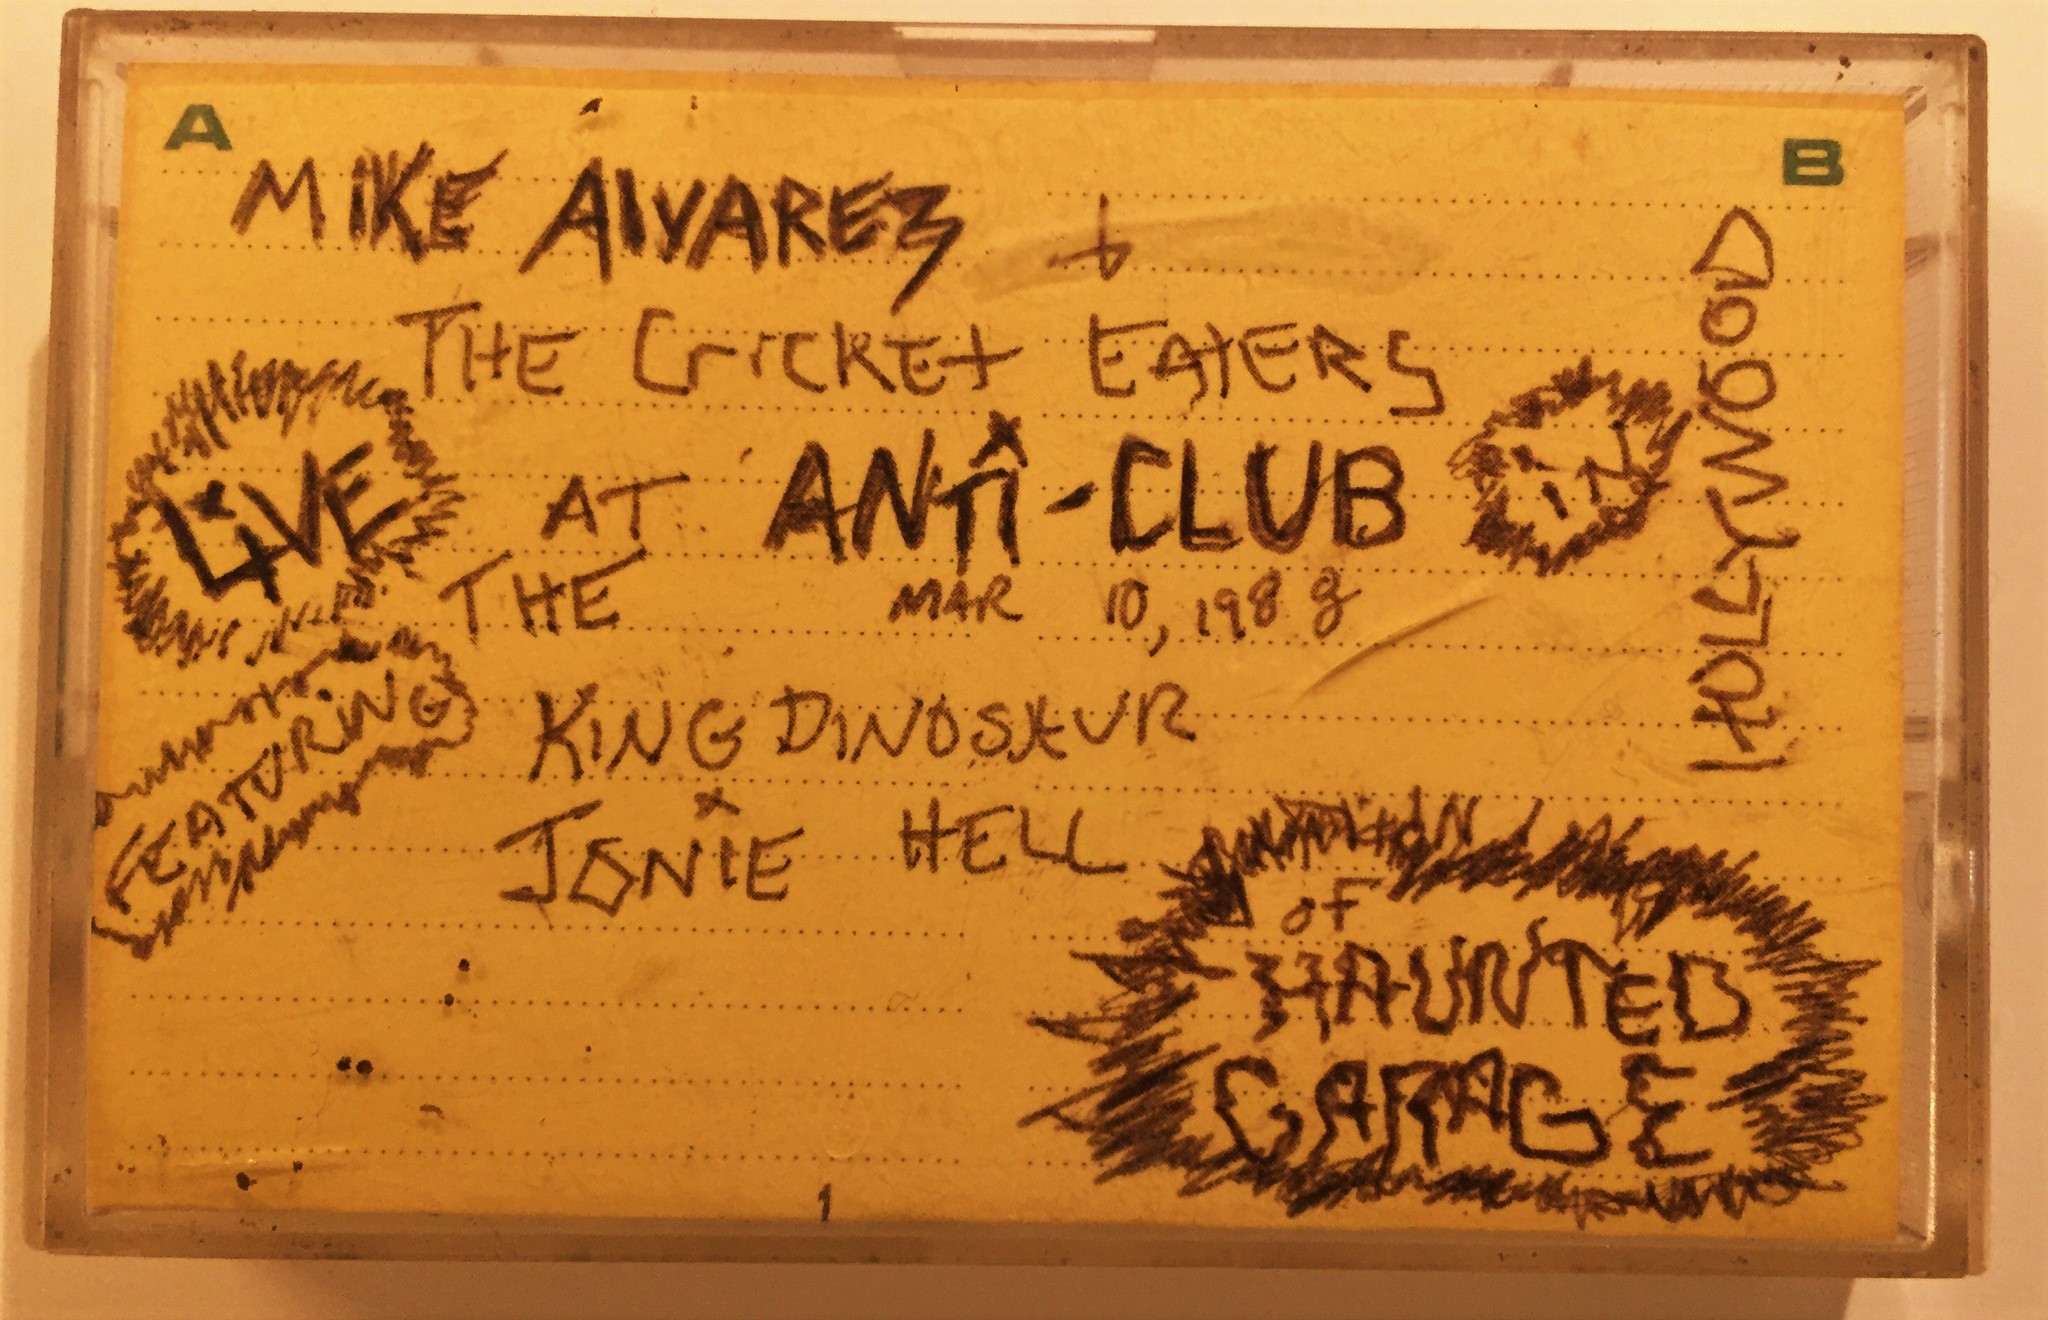 A B
MIKE ALVAREZ +
THE CRICKET EATERS
LIVE AT ANTI-CLUB IN HOLLYWOOD
THE MAR 10, 1988
FEATURING KING DINOSAUR
JONIE HELL
OF
HAUNTED
GARAGE
1